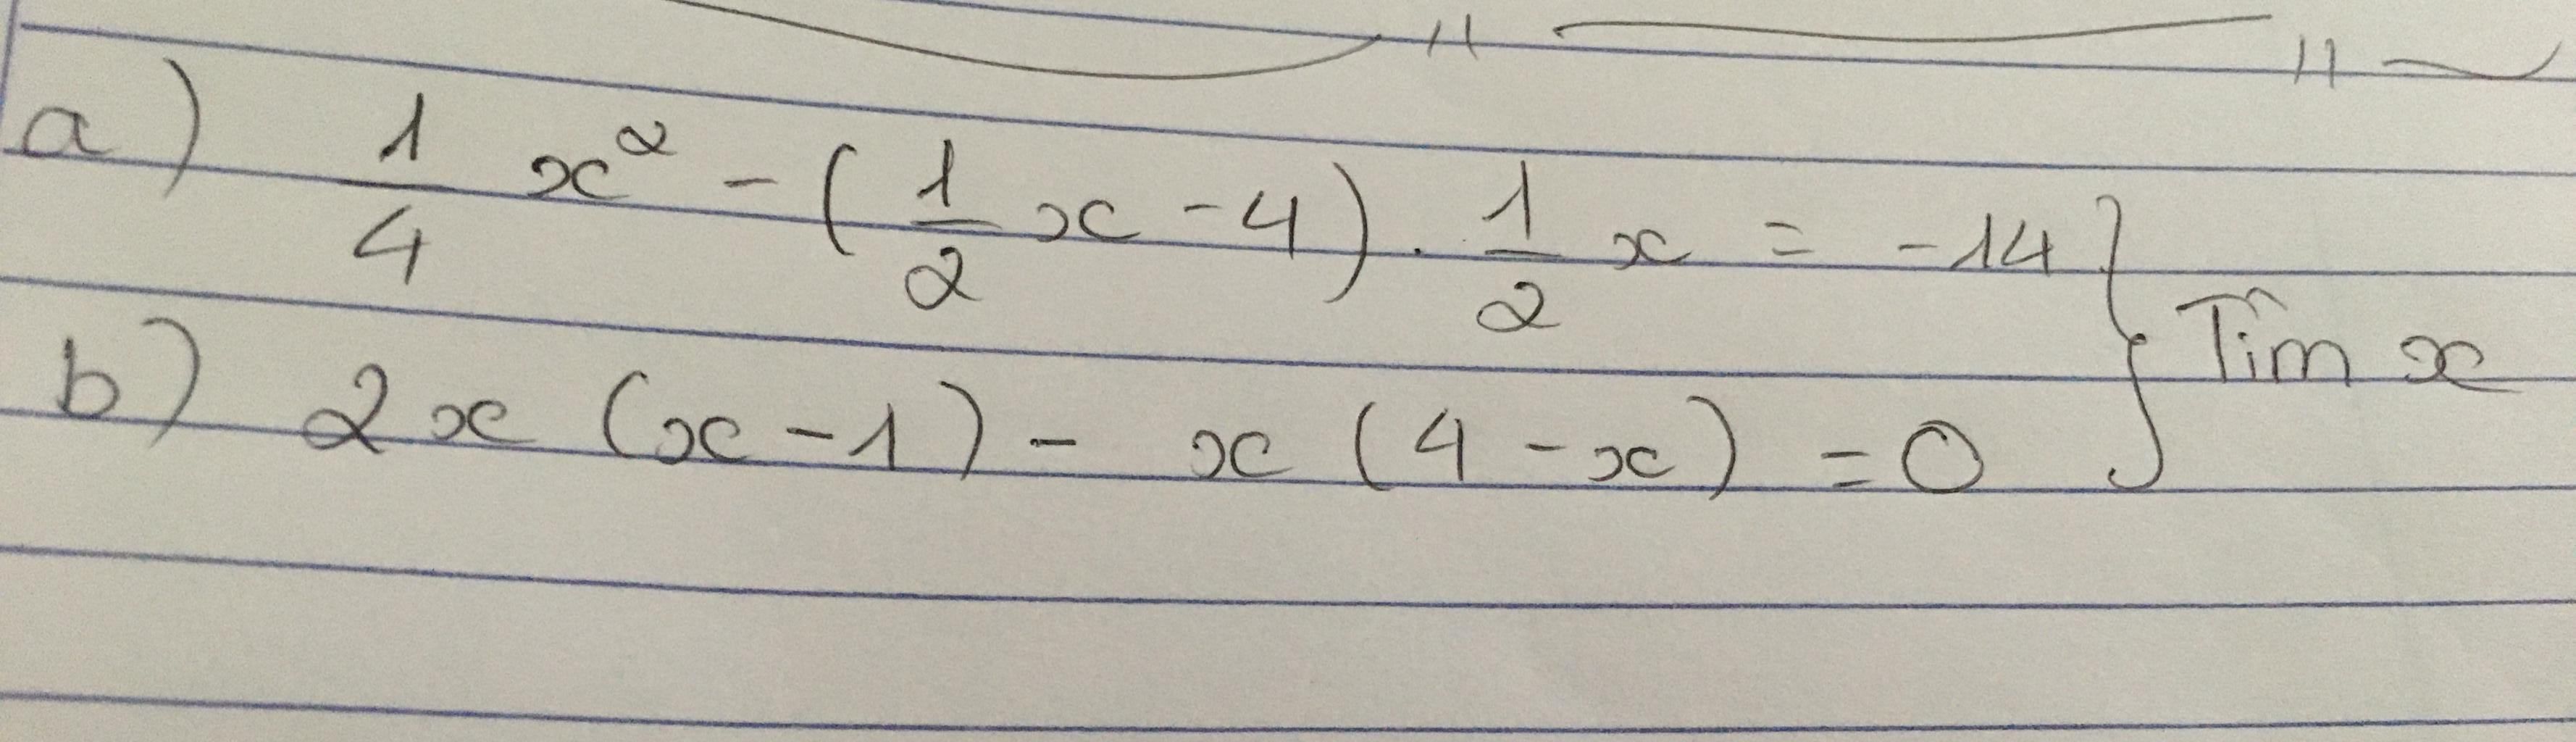 a) 1/4 x² - (1/2 x - 4) . 1/2 x = -14
b) 2x (x - 1) - x (4 - x) = 0
Tìm x